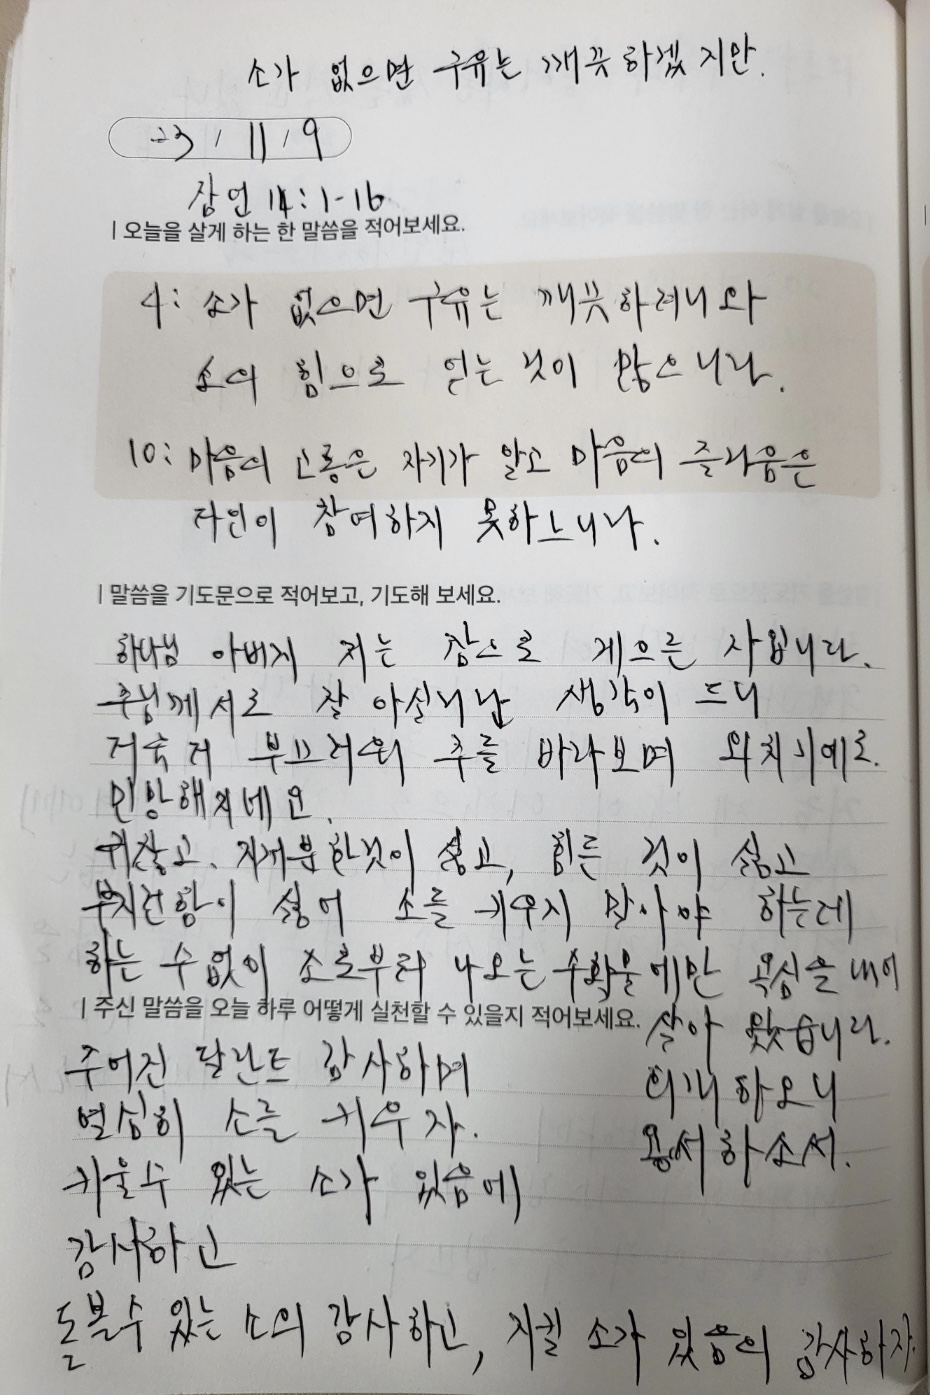 소가 없으면 구유는 깨끗하겠지만.
23 / 11 / 9
잠언 14:1-16
| 오늘을 살게 하는 한 말씀을 적어보세요.
4: 소가 없으면 구유는 깨끗하려니와
소의 힘으로 얻는 것이 많으니라.
10: 마음의 고통은 자기가 알고 마음의 즐거움은
타인이 참여하지 못하느니라.
| 말씀을 기도문으로 적어보고, 기도해 보세요.
하나님 아버지 저는 참으로 게으른 자입니다.
주님께서도 잘 아실 생각이 드니
더욱더 부끄러워 주를 바라보며
민망해지네요.
귀찮고. 지저분한것이 싫고, 힘든 것이 싫고
부지런함이 싫어 소를 키우지 말아야 하는데
하는 수 없이 소로부터 나오는 수확물에만 욕심을 내어
살아 왔습니다.
회개하오니
용서하소서.
| 주신 말씀을 오늘 하루 어떻게 실천할 수 있을지 적어보세요.
주어진 달란트 감사하며
열심히 소를 키우자.
키울수 있는 소가 있음에
감사하고
돌볼수 있는 소의 감사하고, 지킬 소가 있음의 감사하자.